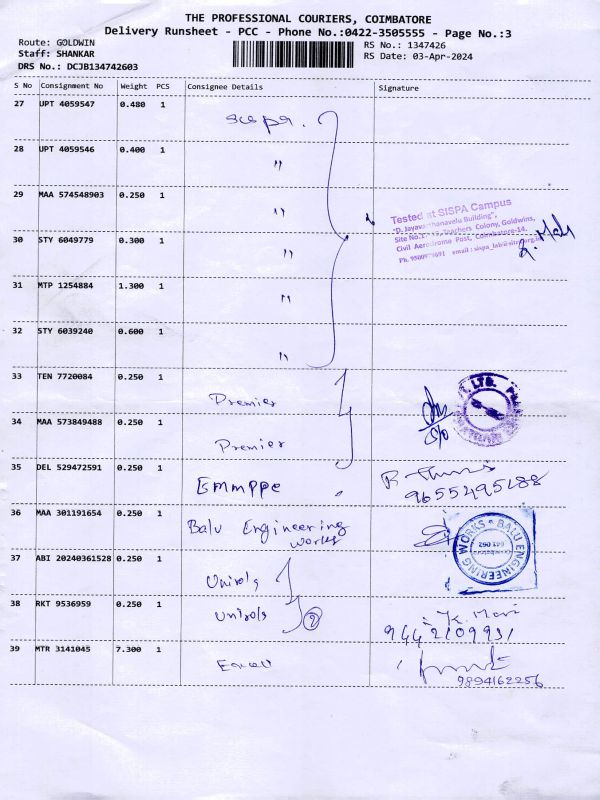 THE PROFESSIONAL COURIERS, COIMBATORE
Delivery Runsheet - PCC - Phone No.:0422-3505555 - Page No.:3
Route: GOLDWIN
Staff: SHANKAR
DRS No.: DCJB134742603
RS No.: 1347426
RS Date: 03-Apr-2024
S No Consignment No Weight PCS Consignee Details Signature
27 UPT 4059547 0.480 1
28 UPT 4059546 0.400 1 "
29 MAA 574548903 0.250 1 "
Tested at SISPA Campus
Building",
Teachers Colony, Goldwins,
Civil Aerodrome Post, Coimbatore-14.
30 STY 6049779 0.300 1 "
31 MTP 1254884 1.300 1 "
32 STY 6039240 0.600 1 "
33 TEN 7720084 0.250 1 Premier
LTD.
34 MAA 573849488 0.250 1 Premier
35 DEL 529472591 0.250 1 Emmppe
36 MAA 301191654 0.250 1 Balu Engineering
Works
BALU ENGINEERING WORKS
37 ABI 20240361528 0.250 1
38 RKT 9536959 0.250 1 2
K. Mari
39 MTR 3141045 7.300 1
9894162256